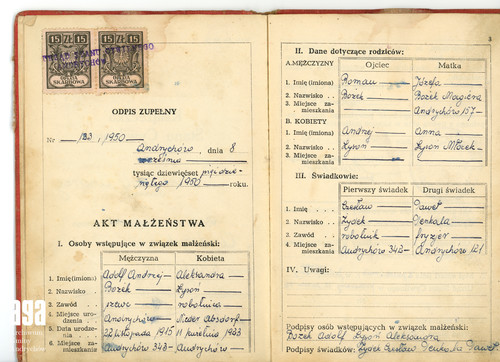 15 ZŁ 15 15 ZŁ 15
OPŁATA SKARBOWA OPŁATA SKARBOWA
ODPIS ZUPEŁNY
Nr 123/1950
Andrychów, dnia 8
września
tysiąc dziewięćset pięćdzie-
siątego 1950 roku.
AKT MAŁŻEŃSTWA
I. Osoby wstępujące w związek małżeński:
Mężczyzna Kobieta
1. Imię(imiona) Adolf Andrzej Aleksandra
2. Nazwisko Bożek
3. Zawód szewc robotnica
4. Miejsce urodzenia Andrychów
5. Data urodzenia 22 listopada 1915 11 kwietnia 1933
6. Miejsce zamieszkania Andrychów 343 Andrychów
3
II. Dane dotyczące rodziców:
Ojciec Matka
A. MĘŻCZYZNY
1. Imię (imiona) Roman Józefa
2. Nazwisko Bożek Bożek
3. Miejsce zamieszkania Andrychów 157
B. KOBIETY
1. Imię (imiona) Andrzej Anna
2. Nazwisko
3. Miejsce zamieszkania
III. Świadkowie:
Pierwszy świadek Drugi świadek
1. Imię Czesław Paweł
2. Nazwisko Żydek
3. Zawód robotnik fryzjer
4. Miejsce zamieszkania Andrychów 343 Andrychów 121
IV. Uwagi:
Podpisy osób wstępujących w związek małżeński:
Bożek Adolf Aleksandra
Podpisy świadków: Żydek Czesław Paweł